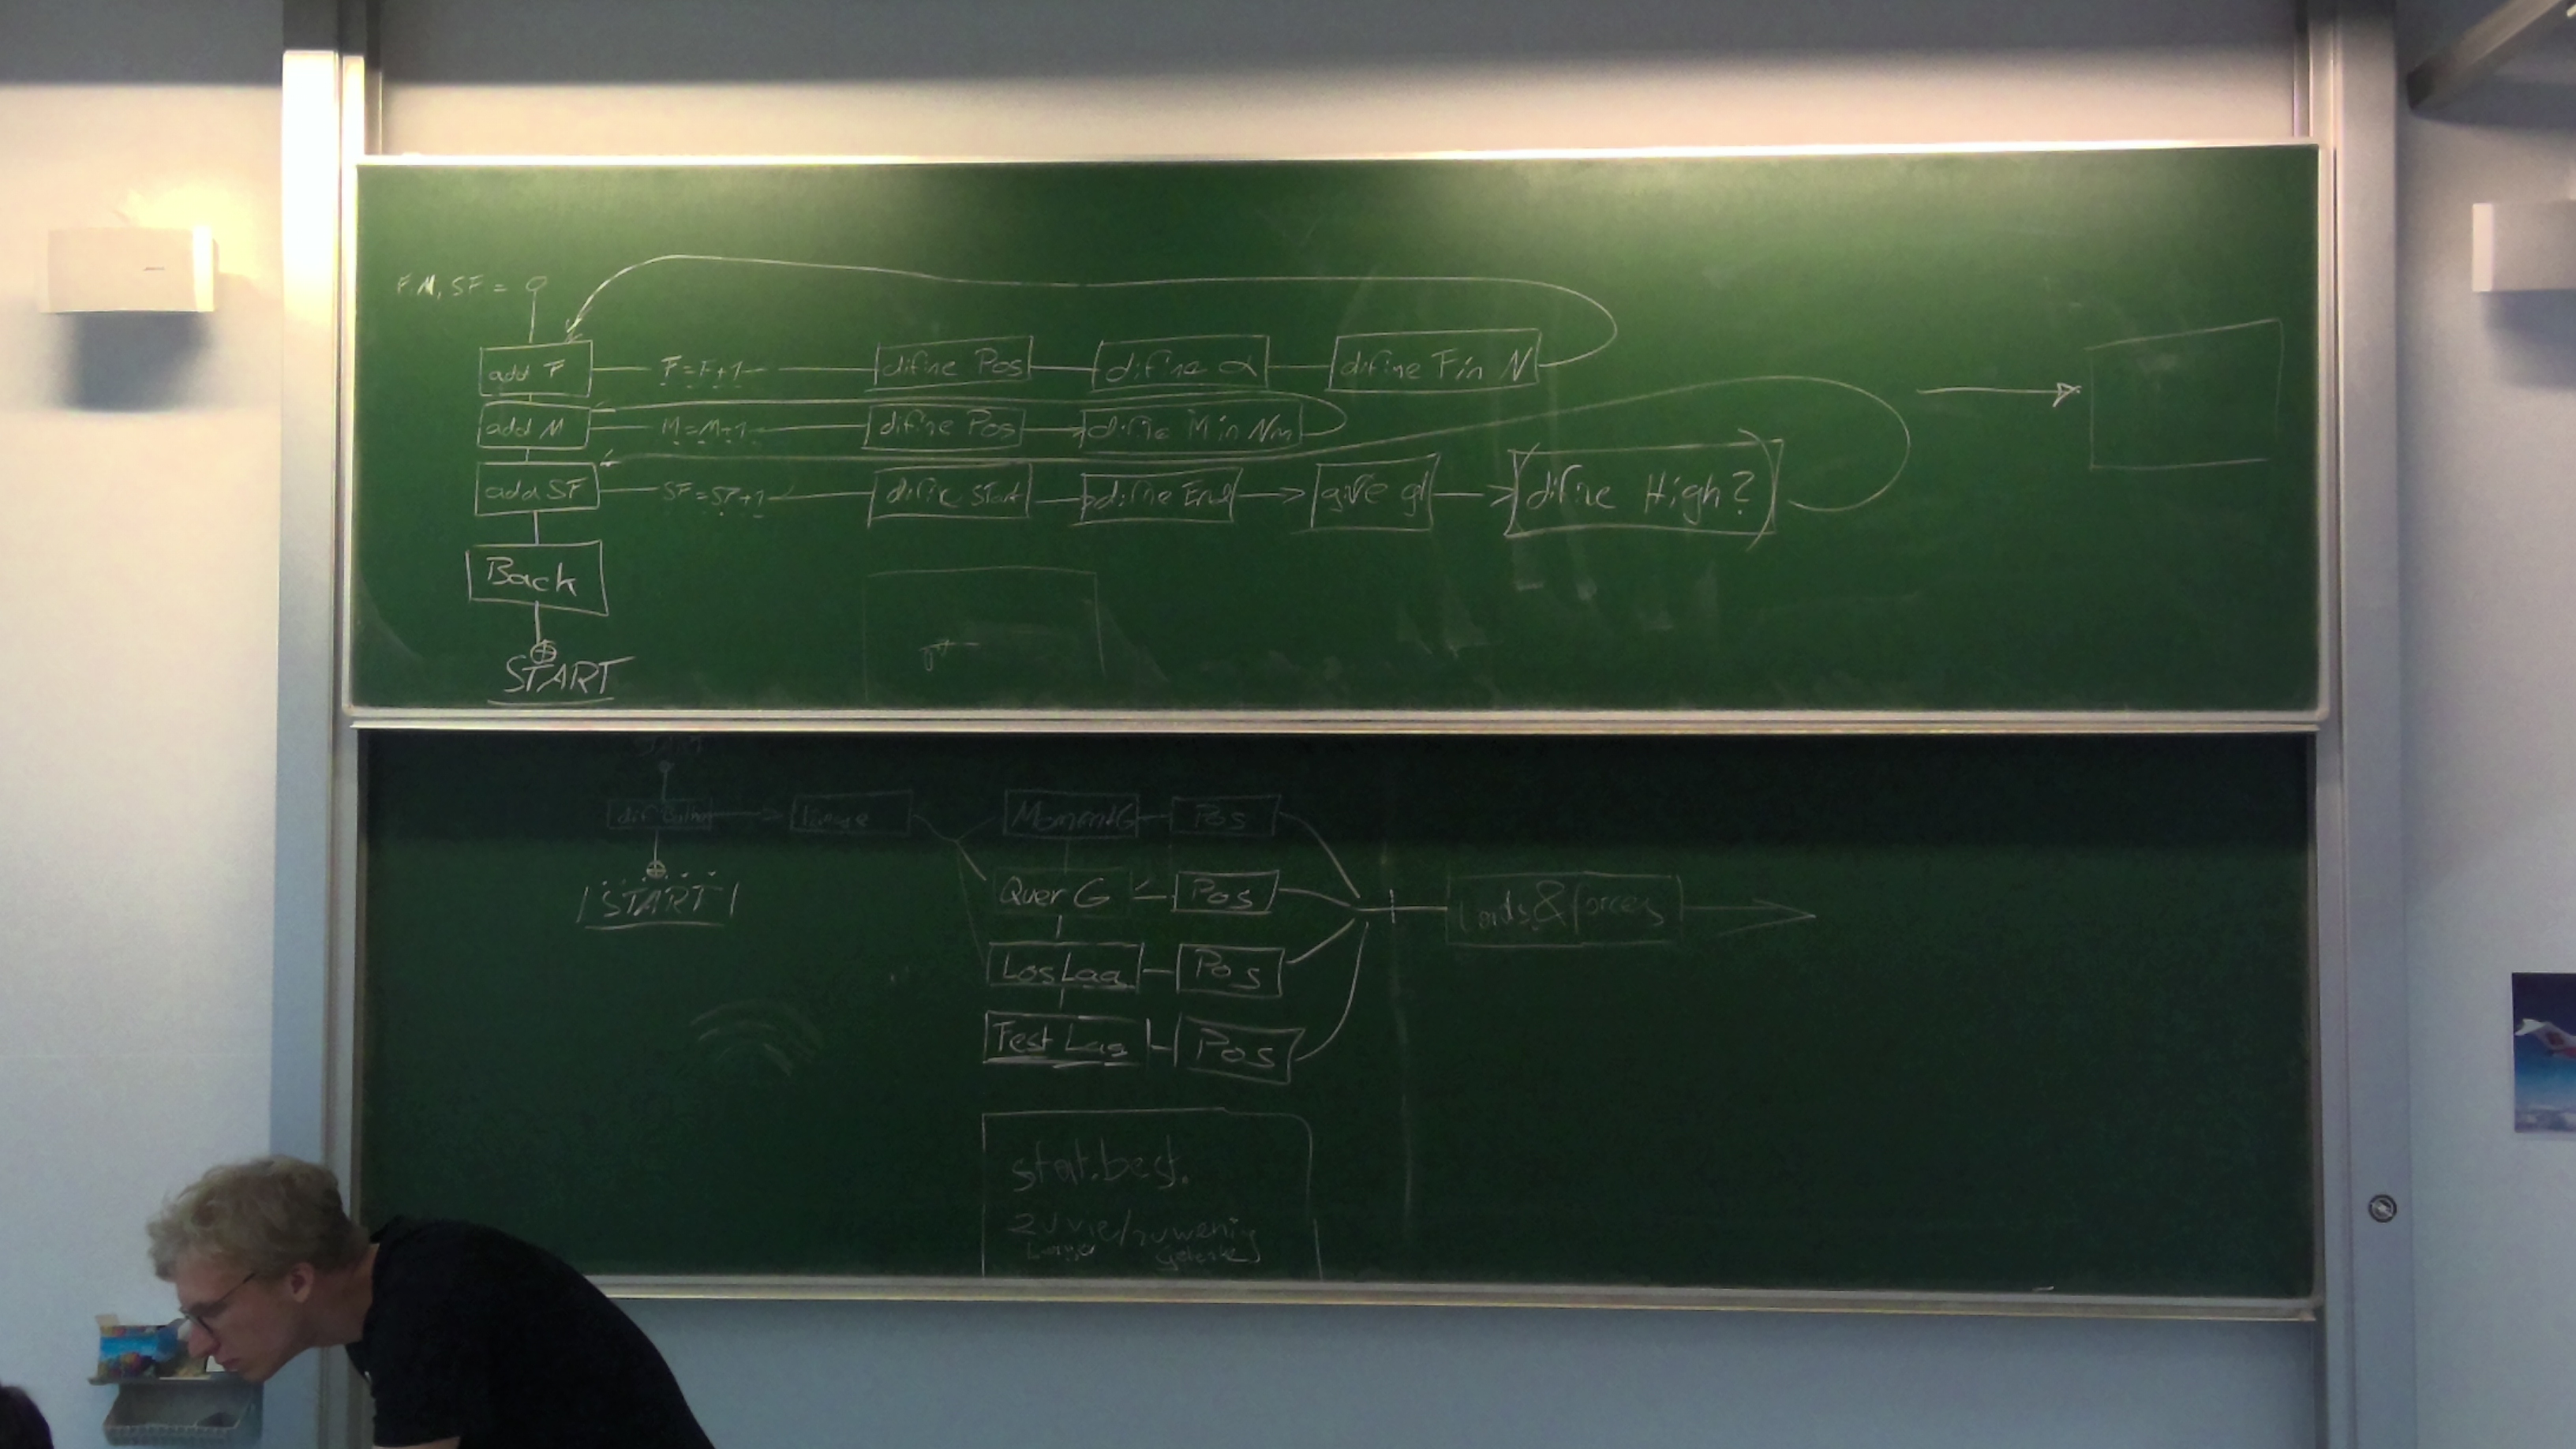 F, M, SF = 0
add F F=F+1 difine Pos difine α difine F in N
add M M=M+1 difine Pos difine M in Nm
add SF SF=SF+1 difine Start difine End give gl difine High?
Back
START
START
MomentG Pos
START
Quer G Pos
Los Lag Pos
Fest Lag Pos
Loads & forces
stat. best.
zu viel/zu wenig